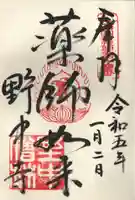 奉拝
令和五年
一月二日
薬師如来
野中寺